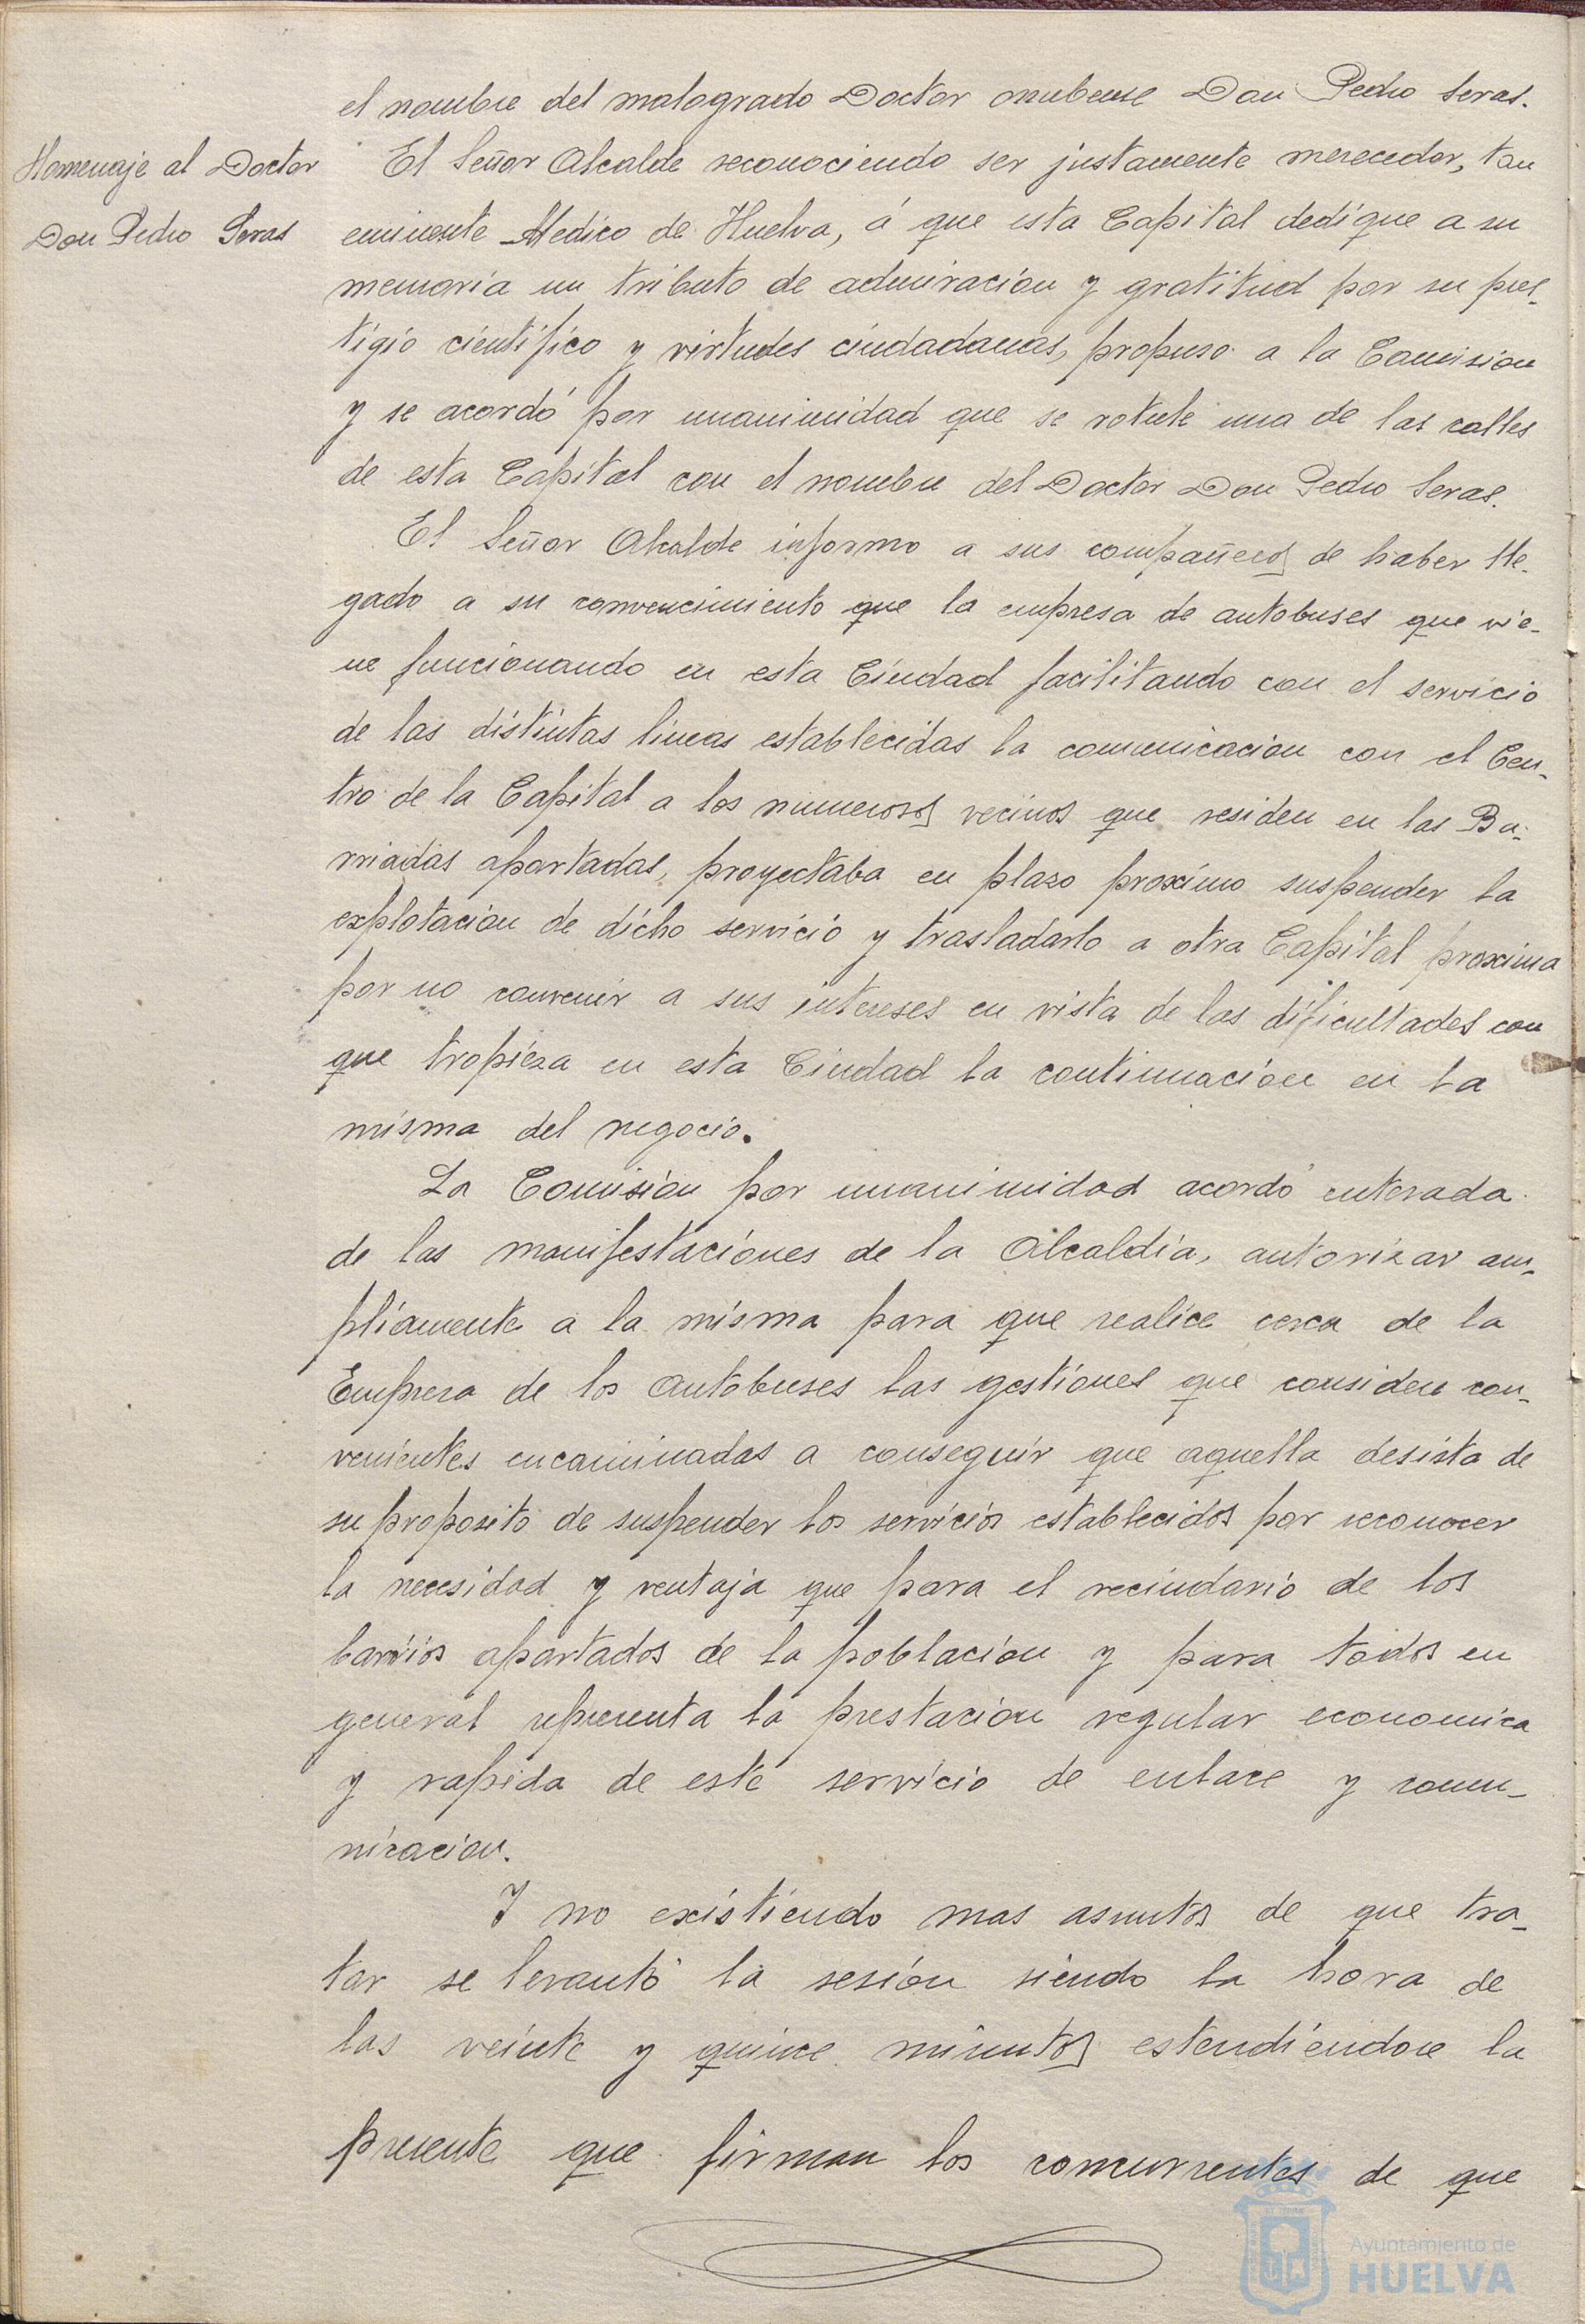 el nombre del malogrado Doctor onubense Don Pedro Seras.
Homenaje al Doctor
Don Pedro Seras
El Señor Alcalde reconociendo ser justamente merecedor, tan
eminente Medico de Huelva, á que esta Capital dedique a su
memoria un tributo de admiración y gratitud por su pres-
tigio cientifico y virtudes ciudadanas, propuso a la Comision
y se acordó por unanimidad que se rotule una de las calles
de esta Capital con el nombre del Doctor Don Pedro Seras.
El Señor Alcalde informo a sus compañeros de haber lle-
gado a su convencimiento que la empresa de autobuses que vie-
ne funcionando en esta Ciudad facilitando con el servicio
de las distintas lineas establecidas la comunicacion con el Cen-
tro de la Capital a los numerosos vecinos que residen en las Ba-
rriadas apartadas, proyectaba en plazo proximo suspender la
explotacion de dicho servicio y trasladarlo a otra Capital proxima
por no convenir a sus intereses en vista de las dificultades con
que tropieza en esta Ciudad la continuación en la
misma del negocio.
La Comisión por unanimidad acordó enterada
de las manifestaciones de la Alcaldia, autorizar am-
pliamente a la misma para que realice cerca de la
Empresa de los autobuses las gestiones que considere con-
venientes encaminadas a conseguir que aquella desista de
su proposito de suspender los servicios establecidos por reconocer
la necesidad y ventaja que para el vecindario de los
barrios apartados de la población y para todos en
general representa la prestación regular economica
y rapida de este servicio de enlace y comu-
nicacion.
Y no existiendo mas asuntos de que tra-
tar se levantó la sesión siendo la hora de
las veinte y quince minutos estendiendose la
presente que firman los concurrentes de que
Ayuntamiento de
HUELVA